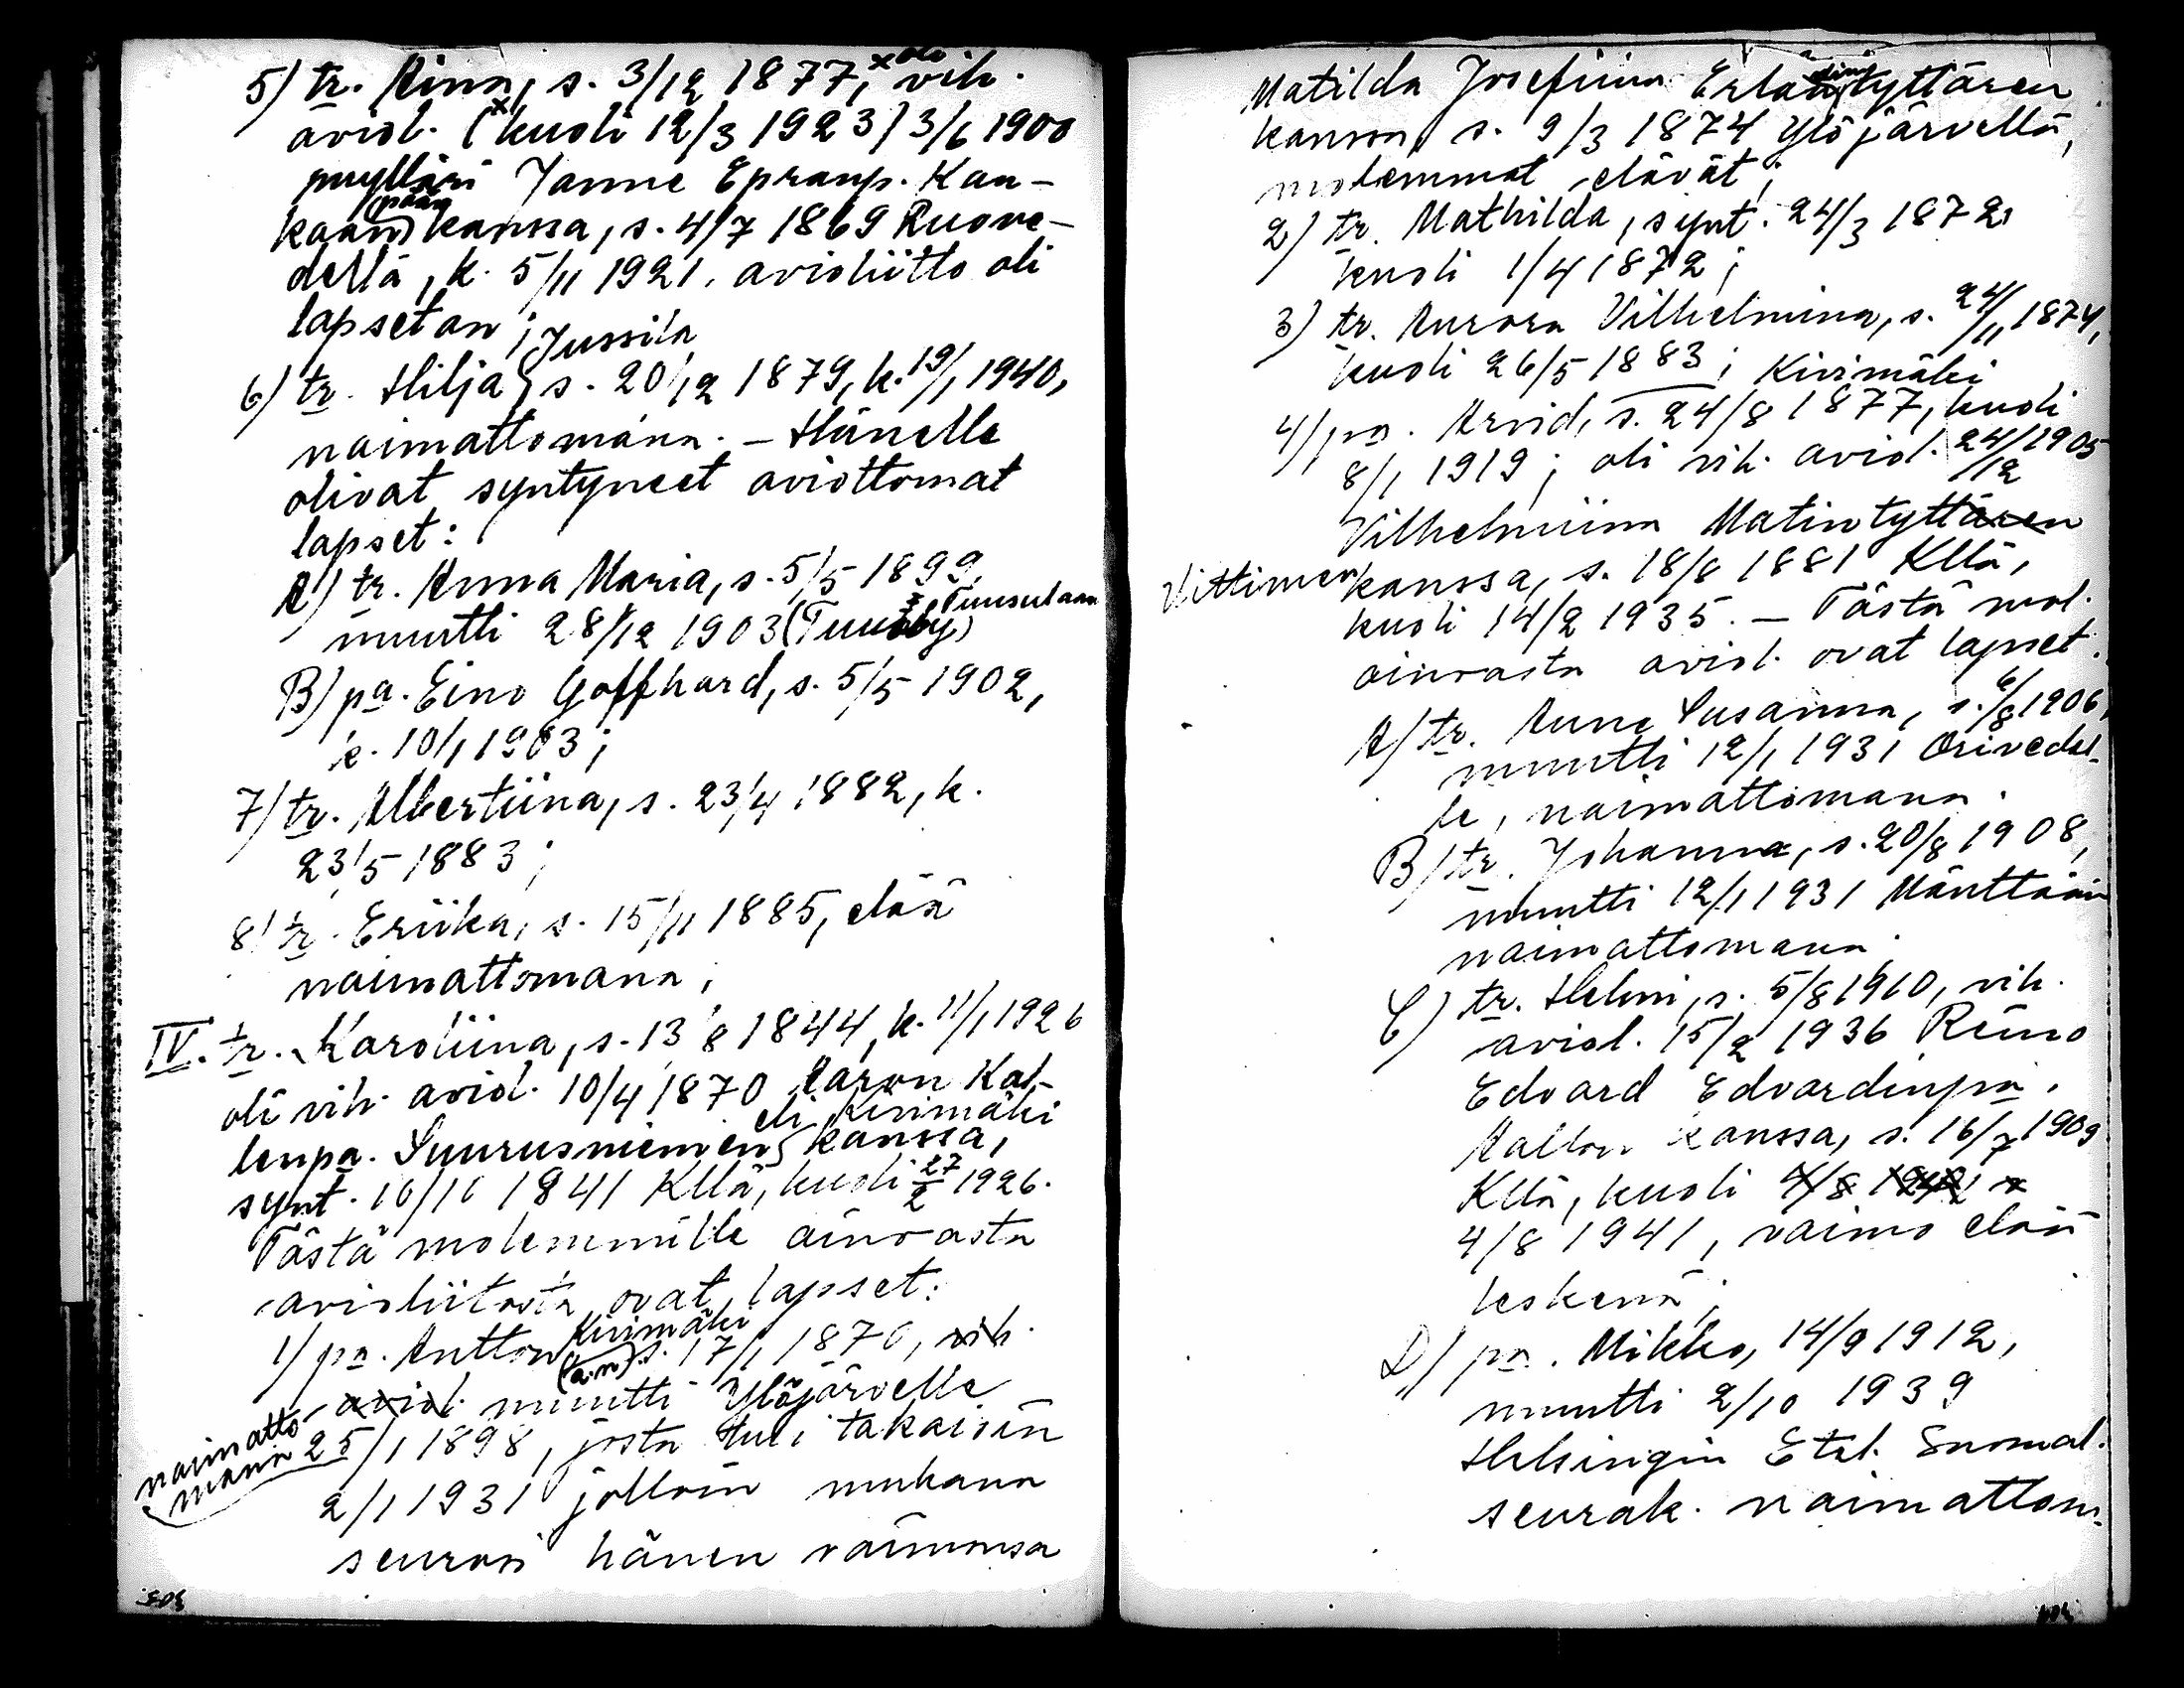 5) tr. Aina, s. 3/12 1877, x oli vih.
aviol. (x kuoli 12/3 1923) 3/6 1900
mylläri Janne Epranp. Kan-
kaan(pään) kanssa, s. 4/7 1869 Ruove-
dellä, k. 5/11 1921. avioliitto oli
lapseton;
6) tr. Hilja Jussila, s. 20/12 1879, k. 19/1 1940,
naimattomana. – Hänelle
olivat syntyneet aviottomat
lapset:
A) tr. Anna Maria, s. 5/5 1899,
muutti 28/12 1903 (Tuusby) Tuusulaan
B) pa. Eino Gotthard, s. 5/5 1902,
k. 10/1 1903;
7) tr. Albertiina, s. 23/4 1882, k.
23/5 1883;
8) tr. Eriika, s. 15/11 1885, elää
naimattomana;
IV. tr. Karoliina, s. 13/8 1844, k. 11/1 1926
oli vih. aviol. 10/4 1870 Aaron Kal-
lenpa. Suurusniemen eli Kivimäki kanssa,
synt. 10/10 1841 Kllä, kuoli 27/2 1926.
Tästä molemmille ainoasta
avioliitosta ovat lapset:
1) pa. Antton Kivimäki (a.n.) s. 17/1 1870, vih.
aviol. muutti Ylöjärvelle
naimatto-
mana 25/1 1898, josta tuli takaisin
2/1 1931 jolloin mukana
seurasi hänen vaimonsa
Matilda Josefiina tyttären
kanssa, s. 9/3 1874 Ylöjärvellä,
molemmat elävät;
2) tr. Mathilda, synt. 24/3 1872
kuoli 1/4 1872;
3) tr. Aurora Vilhelmina, s. 24/11 1874,
kuoli 26/5 1883;
4) pa. Arvid Kivimäki, s. 24/8 1877, kuoli
8/1 1919; oli vih. aviol. 24/12 1905
Vilhelmiina Matintyttären
Vittimen kanssa, s. 18/8 1881 Kllä,
kuoli 14/2 1935. – Tästä mol.
ainoasta aviol. ovat lapset:
A) tr. Aune Susanna, s. 6/8 1906,
muutti 12/1 1931 Orivedel-
le, naimattomana.
B) tr. Johanna, s. 20/8 1908,
muutti 12/1 1931 Mänttään
naimattomana.
C) tr. Helmi, s. 5/8 1910, vih.
aviol. 15/2 1936 Reino
Edvard Edvardinpa.
Aalton kanssa, s. 16/7 1909
Kllä, kuoli 4/8
4/8 1941, vaimo elää
leskenä;
D) pa. Mikko, 14/9 1912,
muutti 2/10 1939
Helsingin Etel. Suomal.
seurak. naimattom.